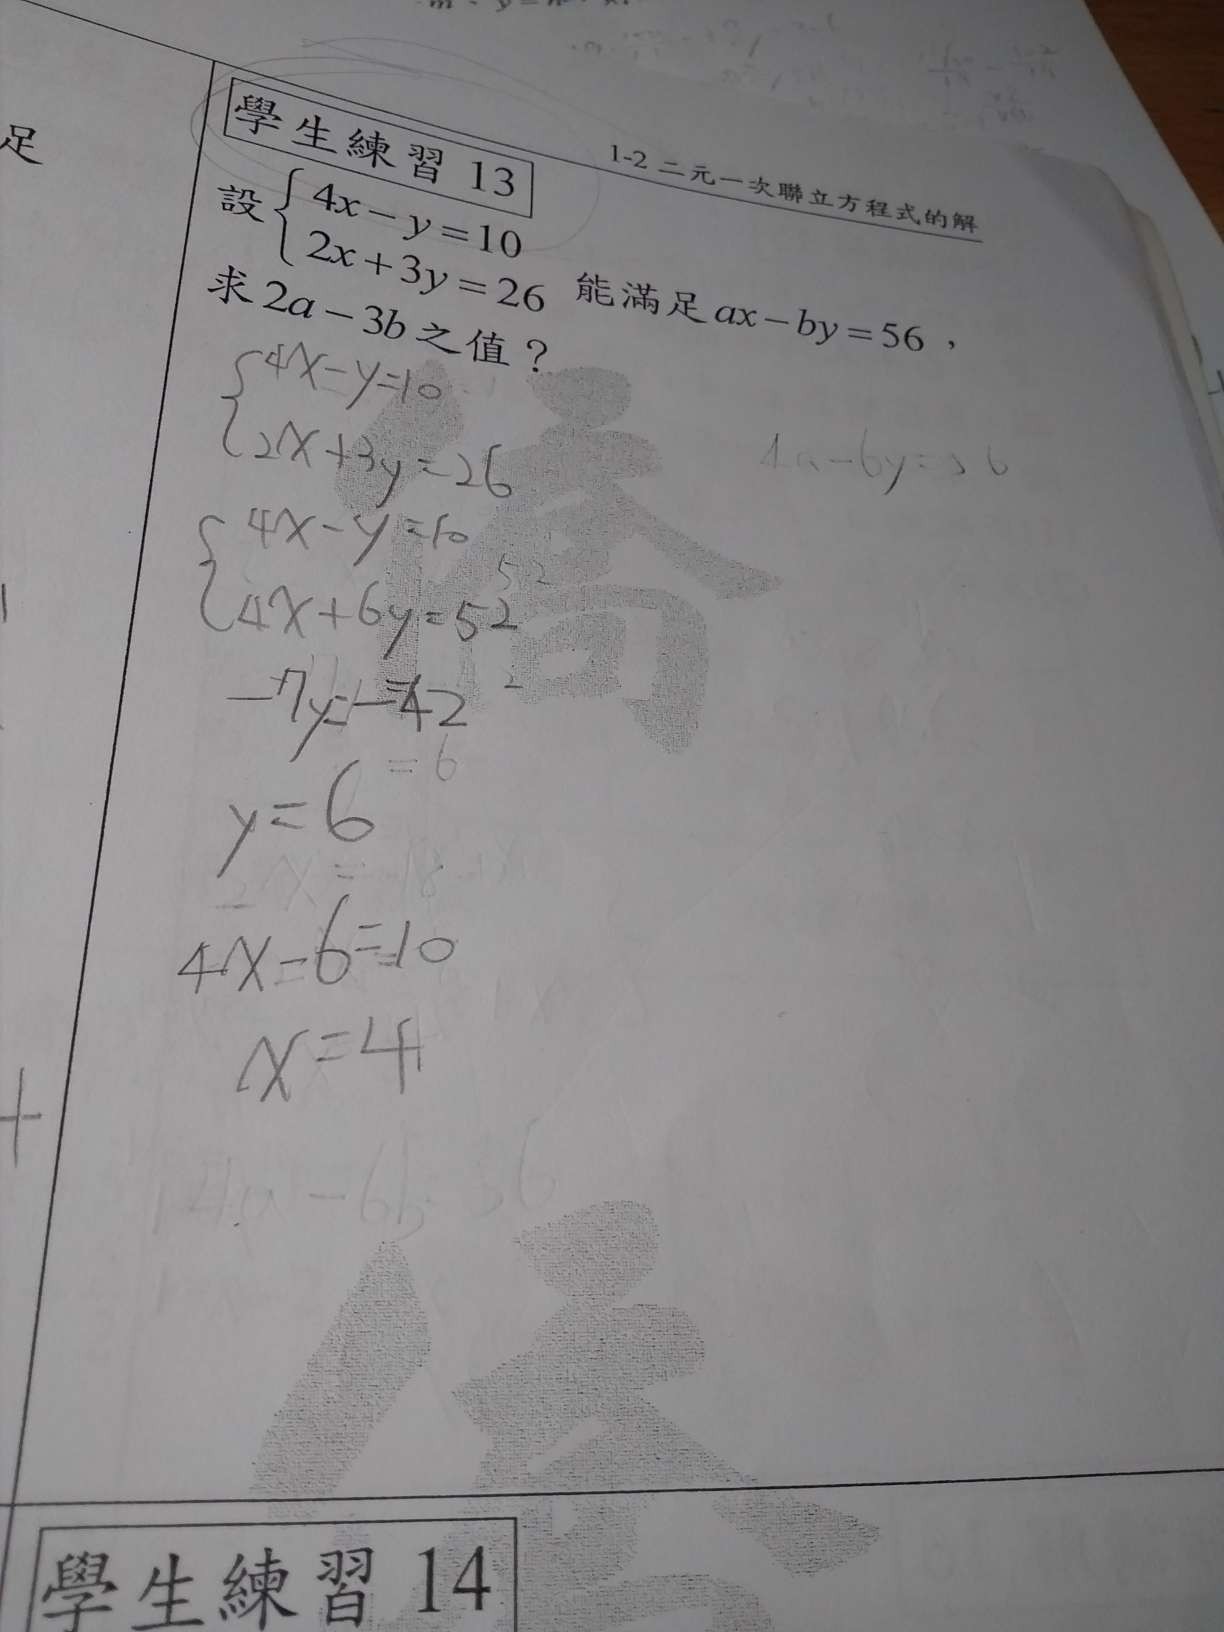 足
1-2 二元一次聯立方程式的解
學生練習 13
設 { 4x - y = 10
2x + 3y = 26 能滿足 ax - by = 56，
求 2a - 3b 之值？
{ 4x - y = 10
2x + 3y = 26
4a - 6y = 56
{ 4x - y = 10
52
4x + 6y = 52
-7y = -42
= 6
y = 6
4x - 6 = 10
x = 4
4a - 6b = 56
學生練習 14